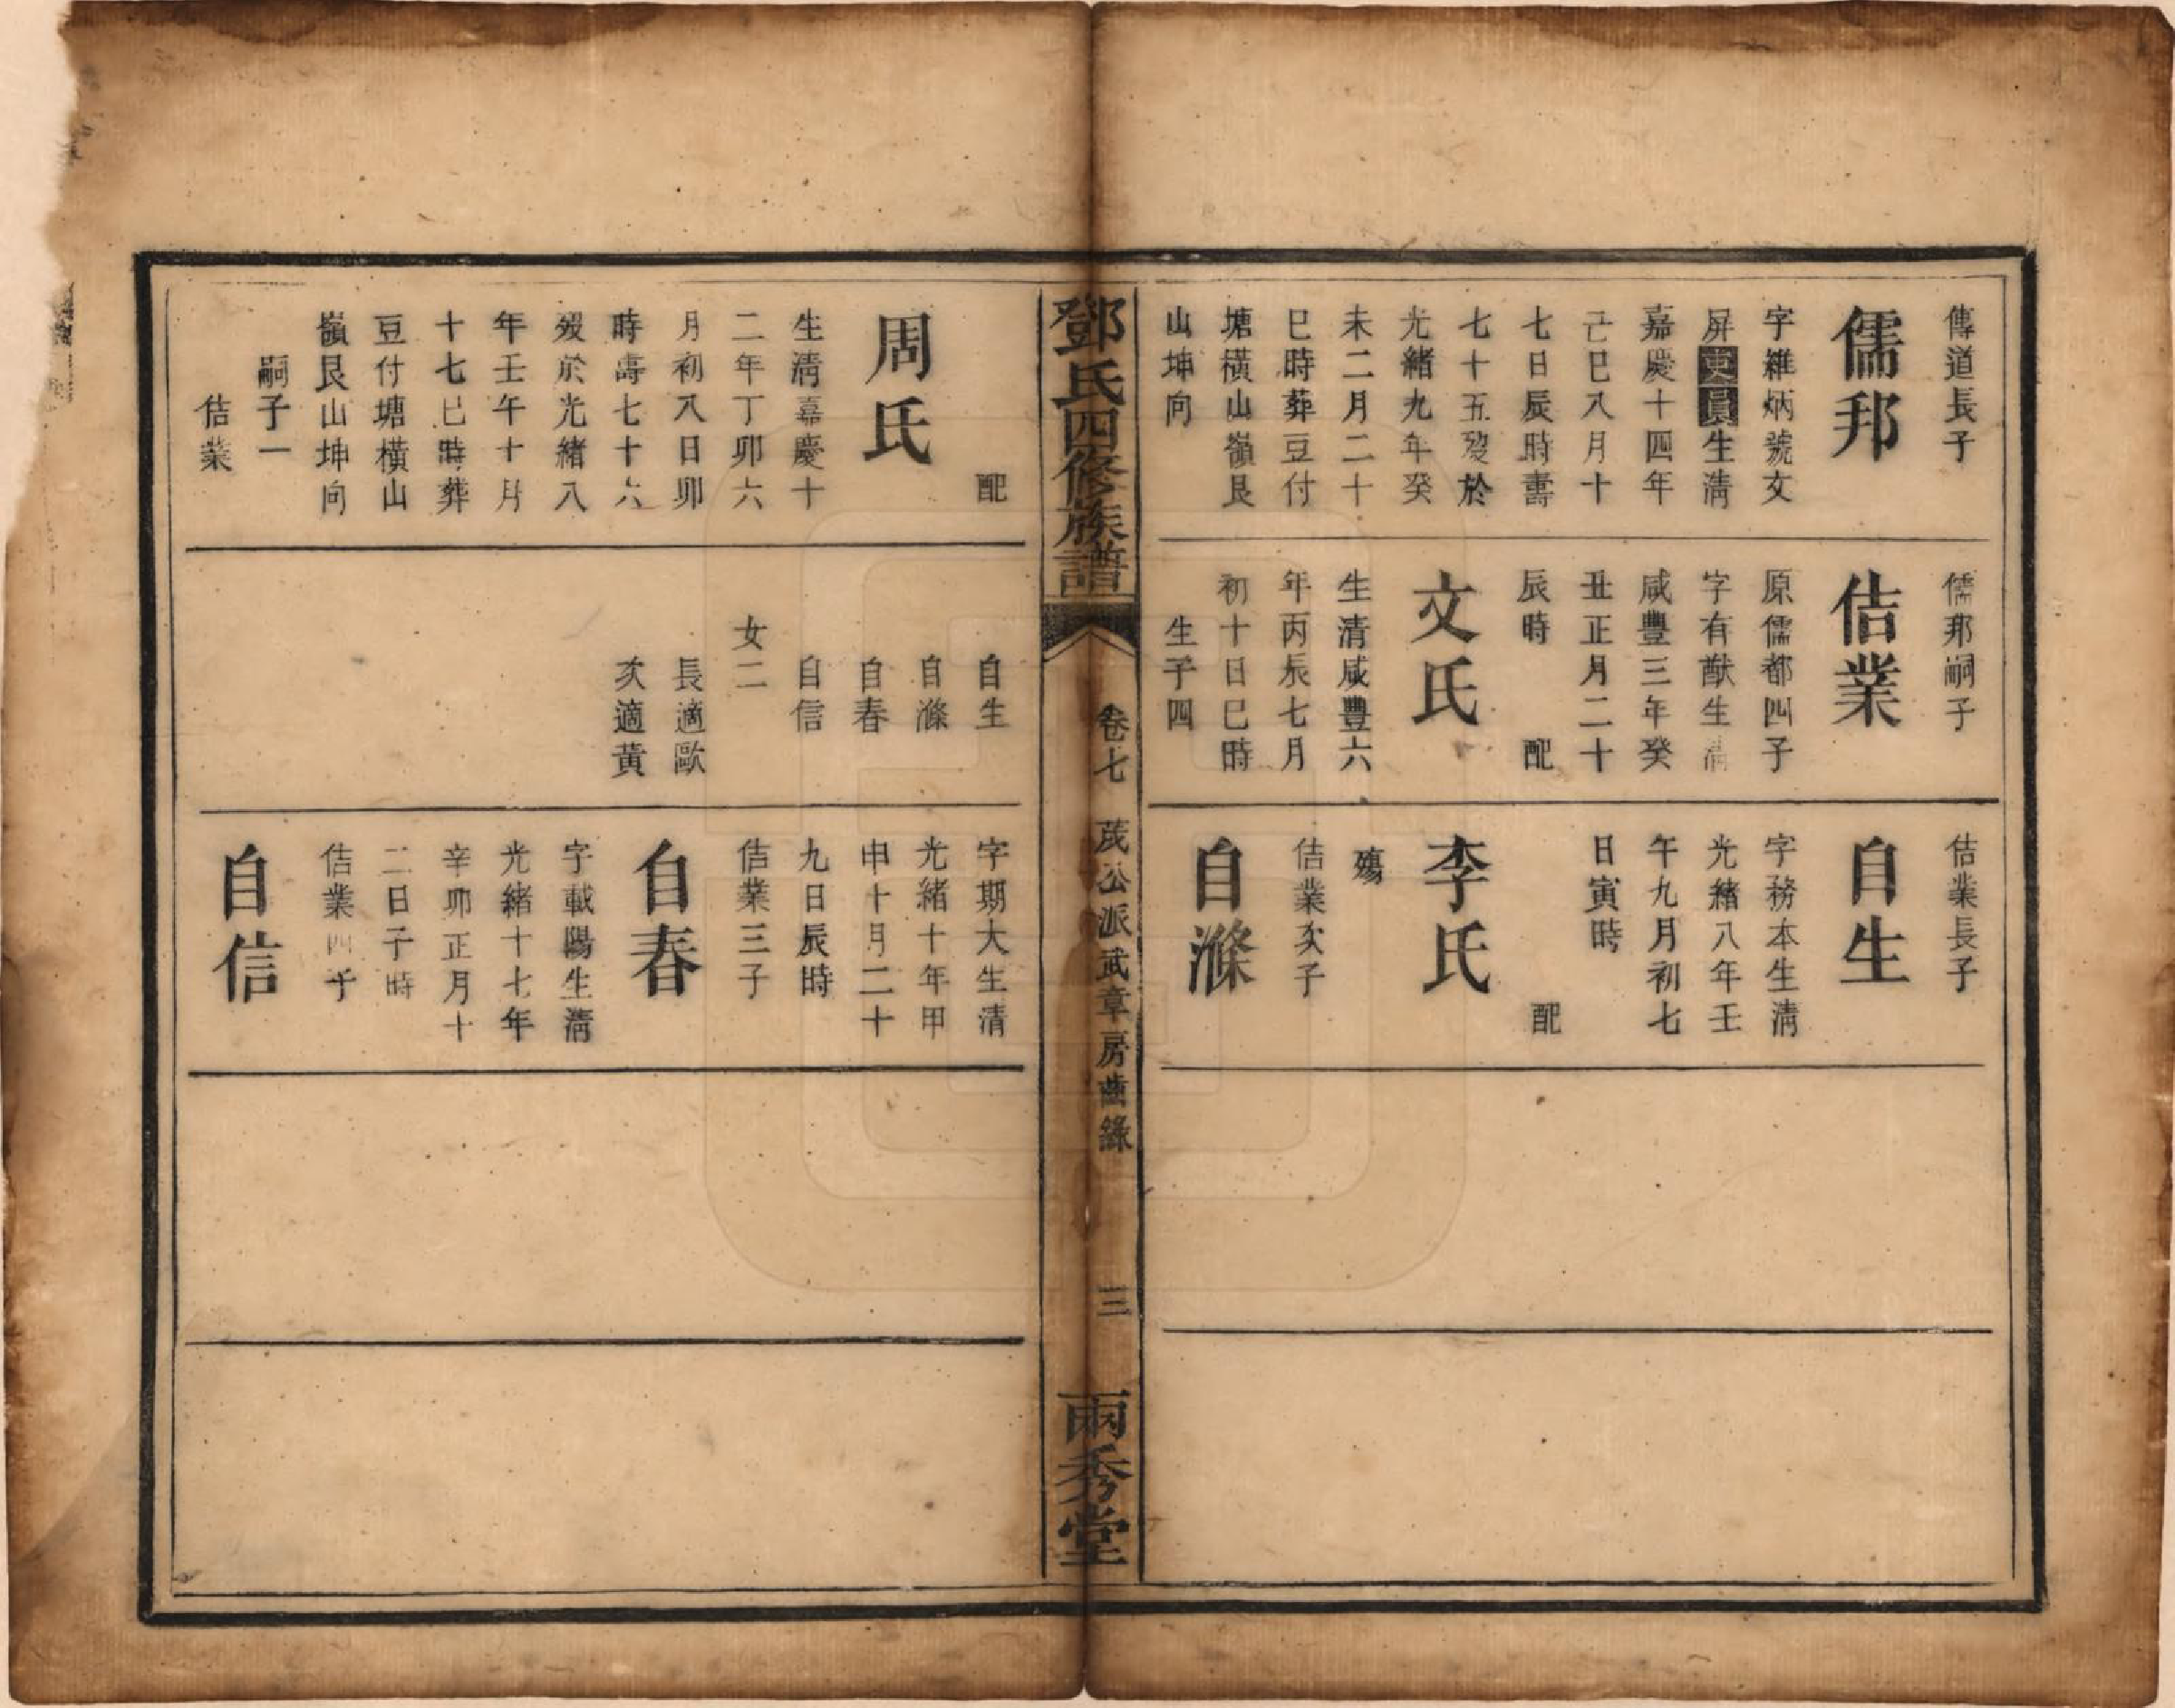 傳道長子
儒邦
字維炳號文
屏吏員生清
嘉慶十四年
己巳八月十
七日辰時壽
七十五歿於
光緒九年癸
未二月二十
巳時葬豆付
塘橫山嶺艮
山坤向
儒邦嗣子
佶業
原儒都四子
字有猷生清
咸豐三年癸
丑正月二十
辰時　配
文氏
生清咸豐六
年丙辰七月
初十日巳時
生子四
佶業長子
自生
字務本生清
光緒八年壬
午九月初七
日寅時
配
李氏
殤
佶業次子
自滌
鄧氏四修族譜
卷七　茂公派武章房齒錄
三
兩秀堂
配
周氏
生清嘉慶十
二年丁卯六
月初八日卯
時壽七十六
歿於光緒八
年壬午十月
十七巳時葬
豆付塘橫山
嶺艮山坤向
嗣子一
佶業
自生
自滌
自春
自信
女二
長適歐
次適黃
字期大生清
光緒十年甲
申十月二十
九日辰時
佶業三子
自春
字載陽生清
光緒十七年
辛卯正月十
二日子時
佶業四子
自信